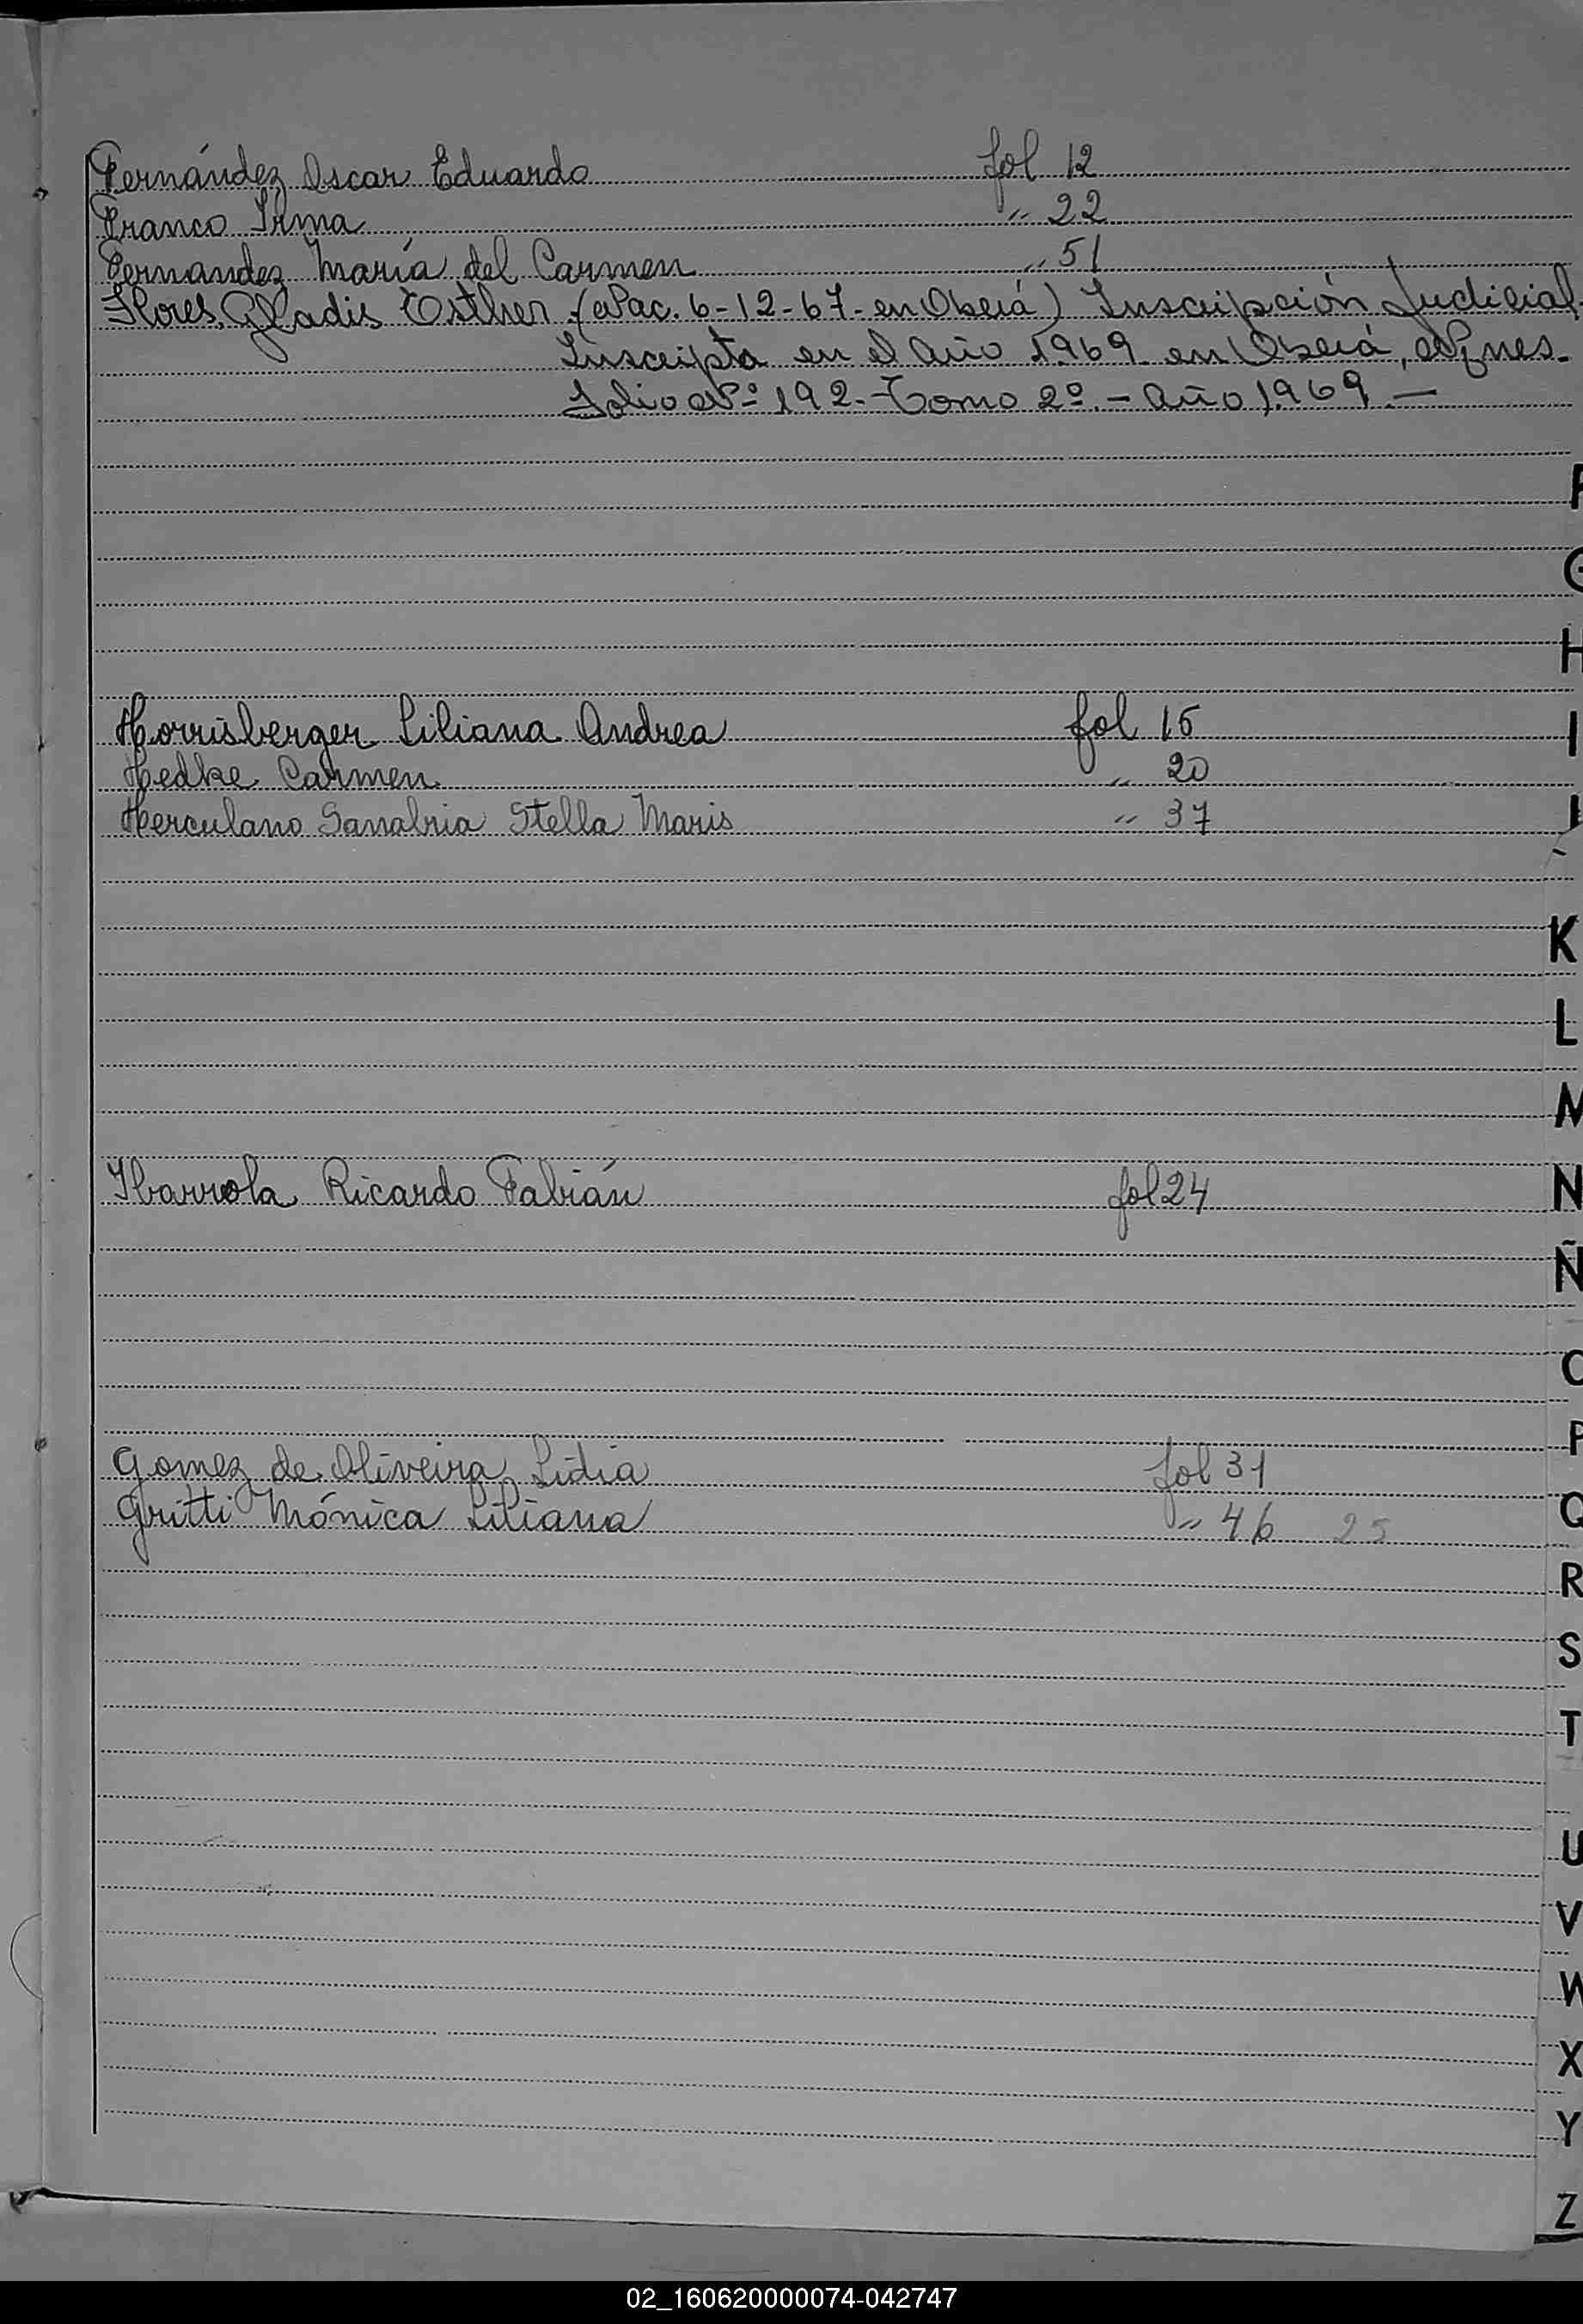 Fernández Oscar Eduardo fol 12
Franco Irma " 22
Fernandez María del Carmen " 51
Flores, Gladis Esther (Nac. 6-12-67- en Oberá) Inscripción Judicial-
Inscripta en el Año 1969 en Oberá, Mnes.
Folio Nº 192.- Tomo 2º.- Año 1969.-
F
G
H
Horrisberger Liliana Andrea fol 15
I
Hedke Carmen " 20
Herculano Sanabria Stella Maris " 37
J
K
L
M
Ibarrola Ricardo Fabián fol 24
N
Ñ
O
P
Gomez de Oliveira Lidia fol 31
Gritti Mónica Liliana " 46 25
Q
R
S
T
U
V
W
X
Y
Z
02_160620000074-042747